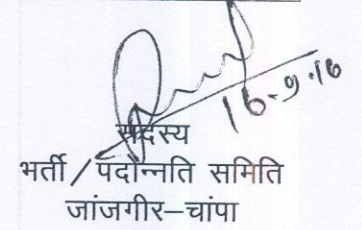 16.9.16
सदस्य
भर्ती / पदोन्नति समिति
जांजगीर–चांपा